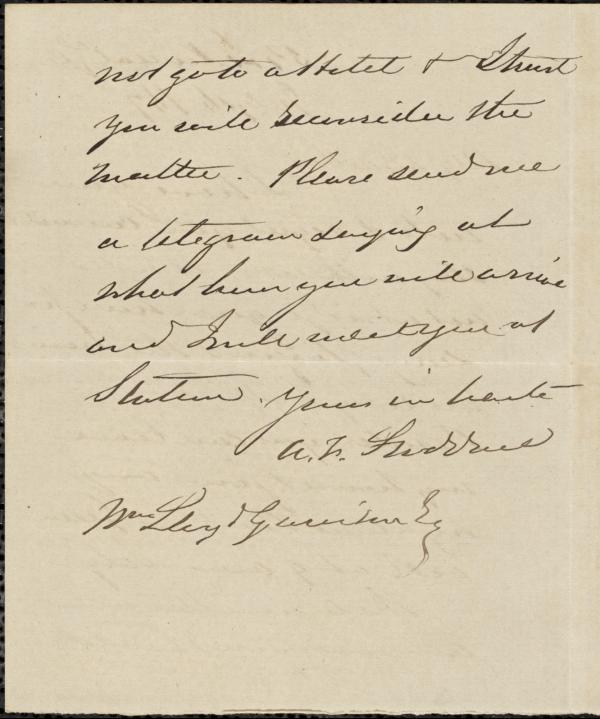 not go to a Hotel & I trust
you will reconsider the
matter. Please send me
a telegram saying at
what hour you will arrive
and I will meet you at
Station. Yours in haste
A. F.
Wm Lloyd Garrison Esq